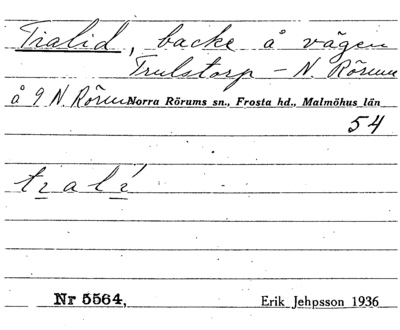 Tralid, backe å vägen
Trulstorp – N. Rörum
å 9 N. Rörum Norra Rörums sn., Frosta hd., Malmöhus län
54
tralí
Nr 5564. Erik Jehpsson 1936